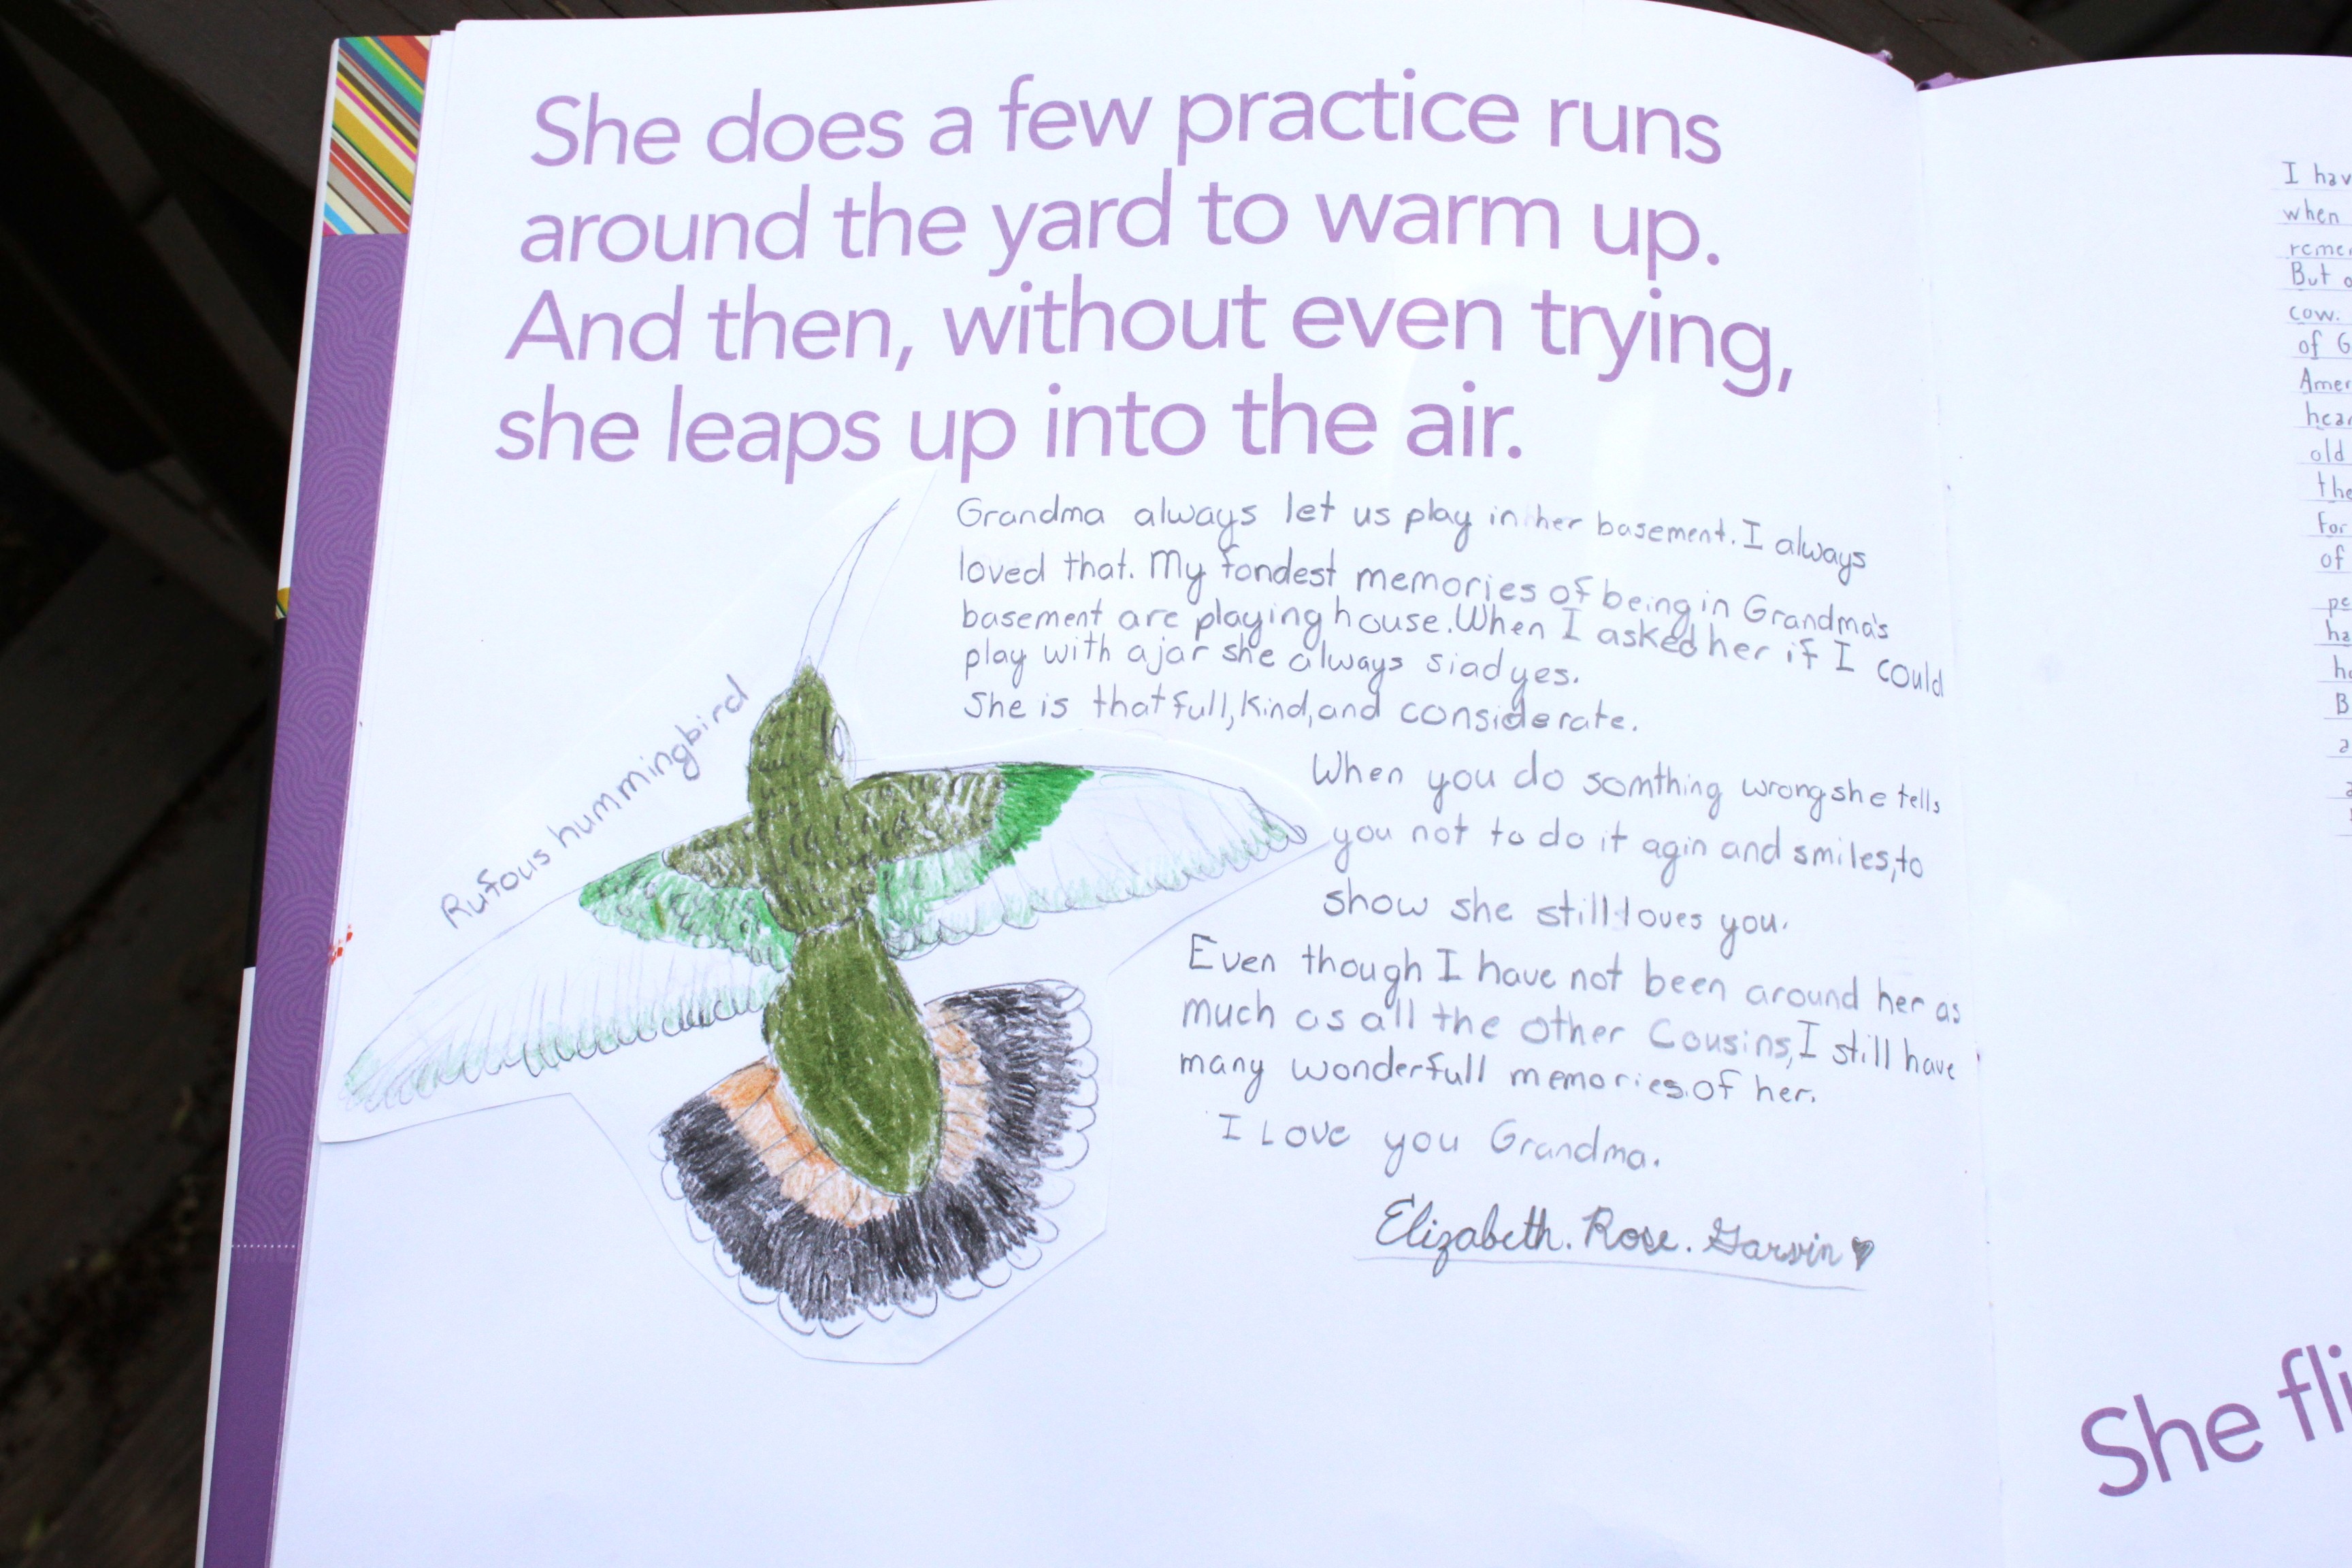 She does a few practice runs
around the yard to warm up.
And then, without even trying,
she leaps up into the air.
Grandma always let us play in her basement. I always
loved that. My fondest memories of being in Grandma's
basement are playing house. When I asked her if I could
play with a jar she always siad yes.
She is thatfull, kind, and considerate.
Rufous hummingbird
When you do somthing wrong she tells
you not to do it agin and smiles, to
show she still loves you.
Even though I have not been around her as
much as all the other Cousins, I still have
many wonderfull memories of her.
I Love you Grandma.
Elizabeth. Rose. Garvin ♥
I hav
when
reme
But o
cow.
of G
Amer
hear
old
the
For
of
pe
ha
ho
B
a
She fli